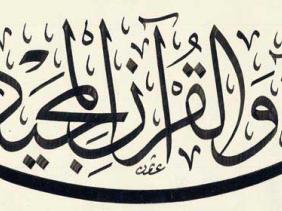 وَالْقُرْآنِ الْمَجِيدِ